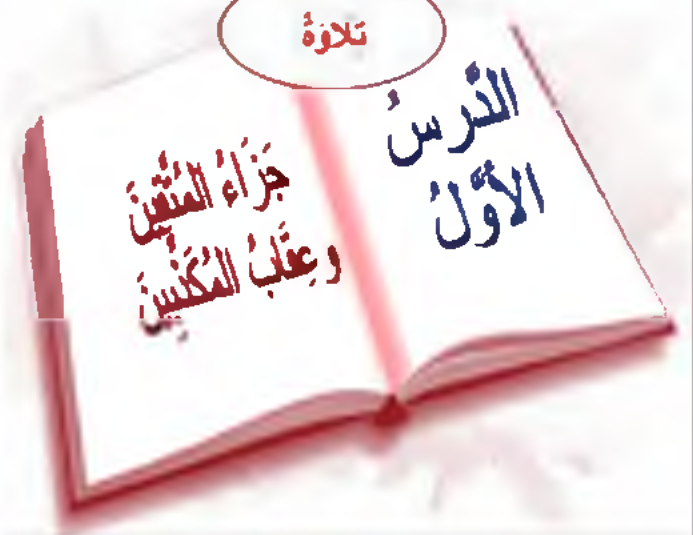 تلاوَةٌ
الدَّرسُ
الأَوَّلُ
جَزَاءُ المُتَّقِينَ
وعِقَابُ المُكَذِّبِينَ